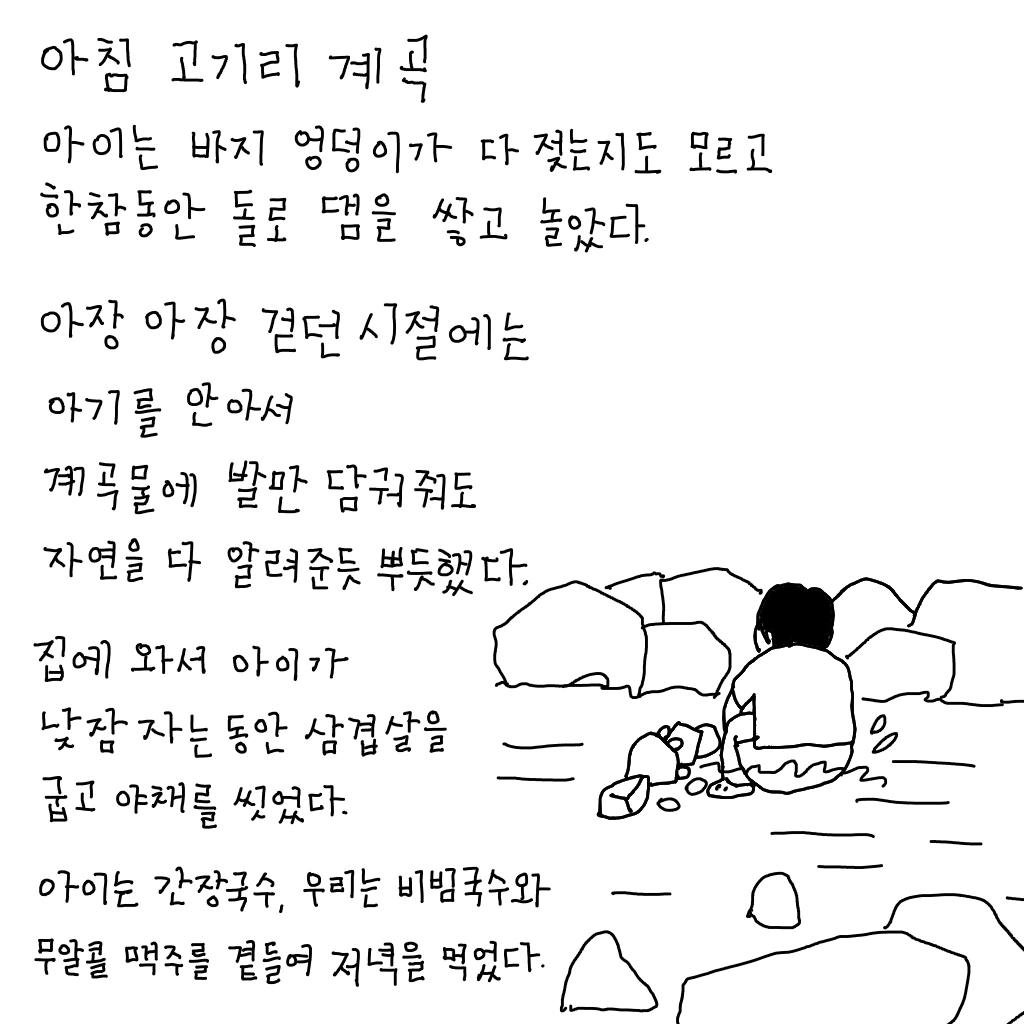 아침 고기리 계곡
아이는 바지 엉덩이가 다 젖는지도 모르고
한참동안 돌로 댐을 쌓고 놀았다.
아장 아장 걷던 시절에는
아기를 안아서
계곡물에 발만 담궈줘도
자연을 다 알려준듯 뿌듯했다.
집에 와서 아이가
낮잠 자는 동안 삼겹살을
굽고 야채를 씻었다.
아이는 간장국수, 우리는 비빔국수와
무알콜 맥주를 곁들여 저녁을 먹었다.